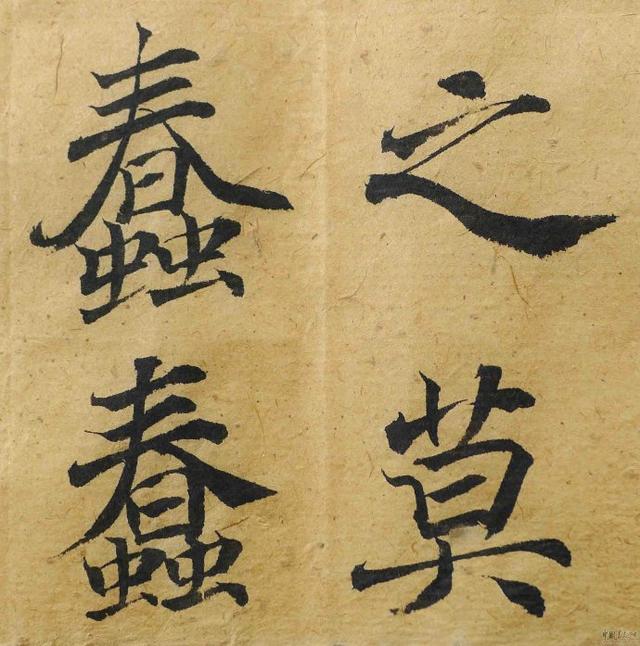 之莫
蠢蠢